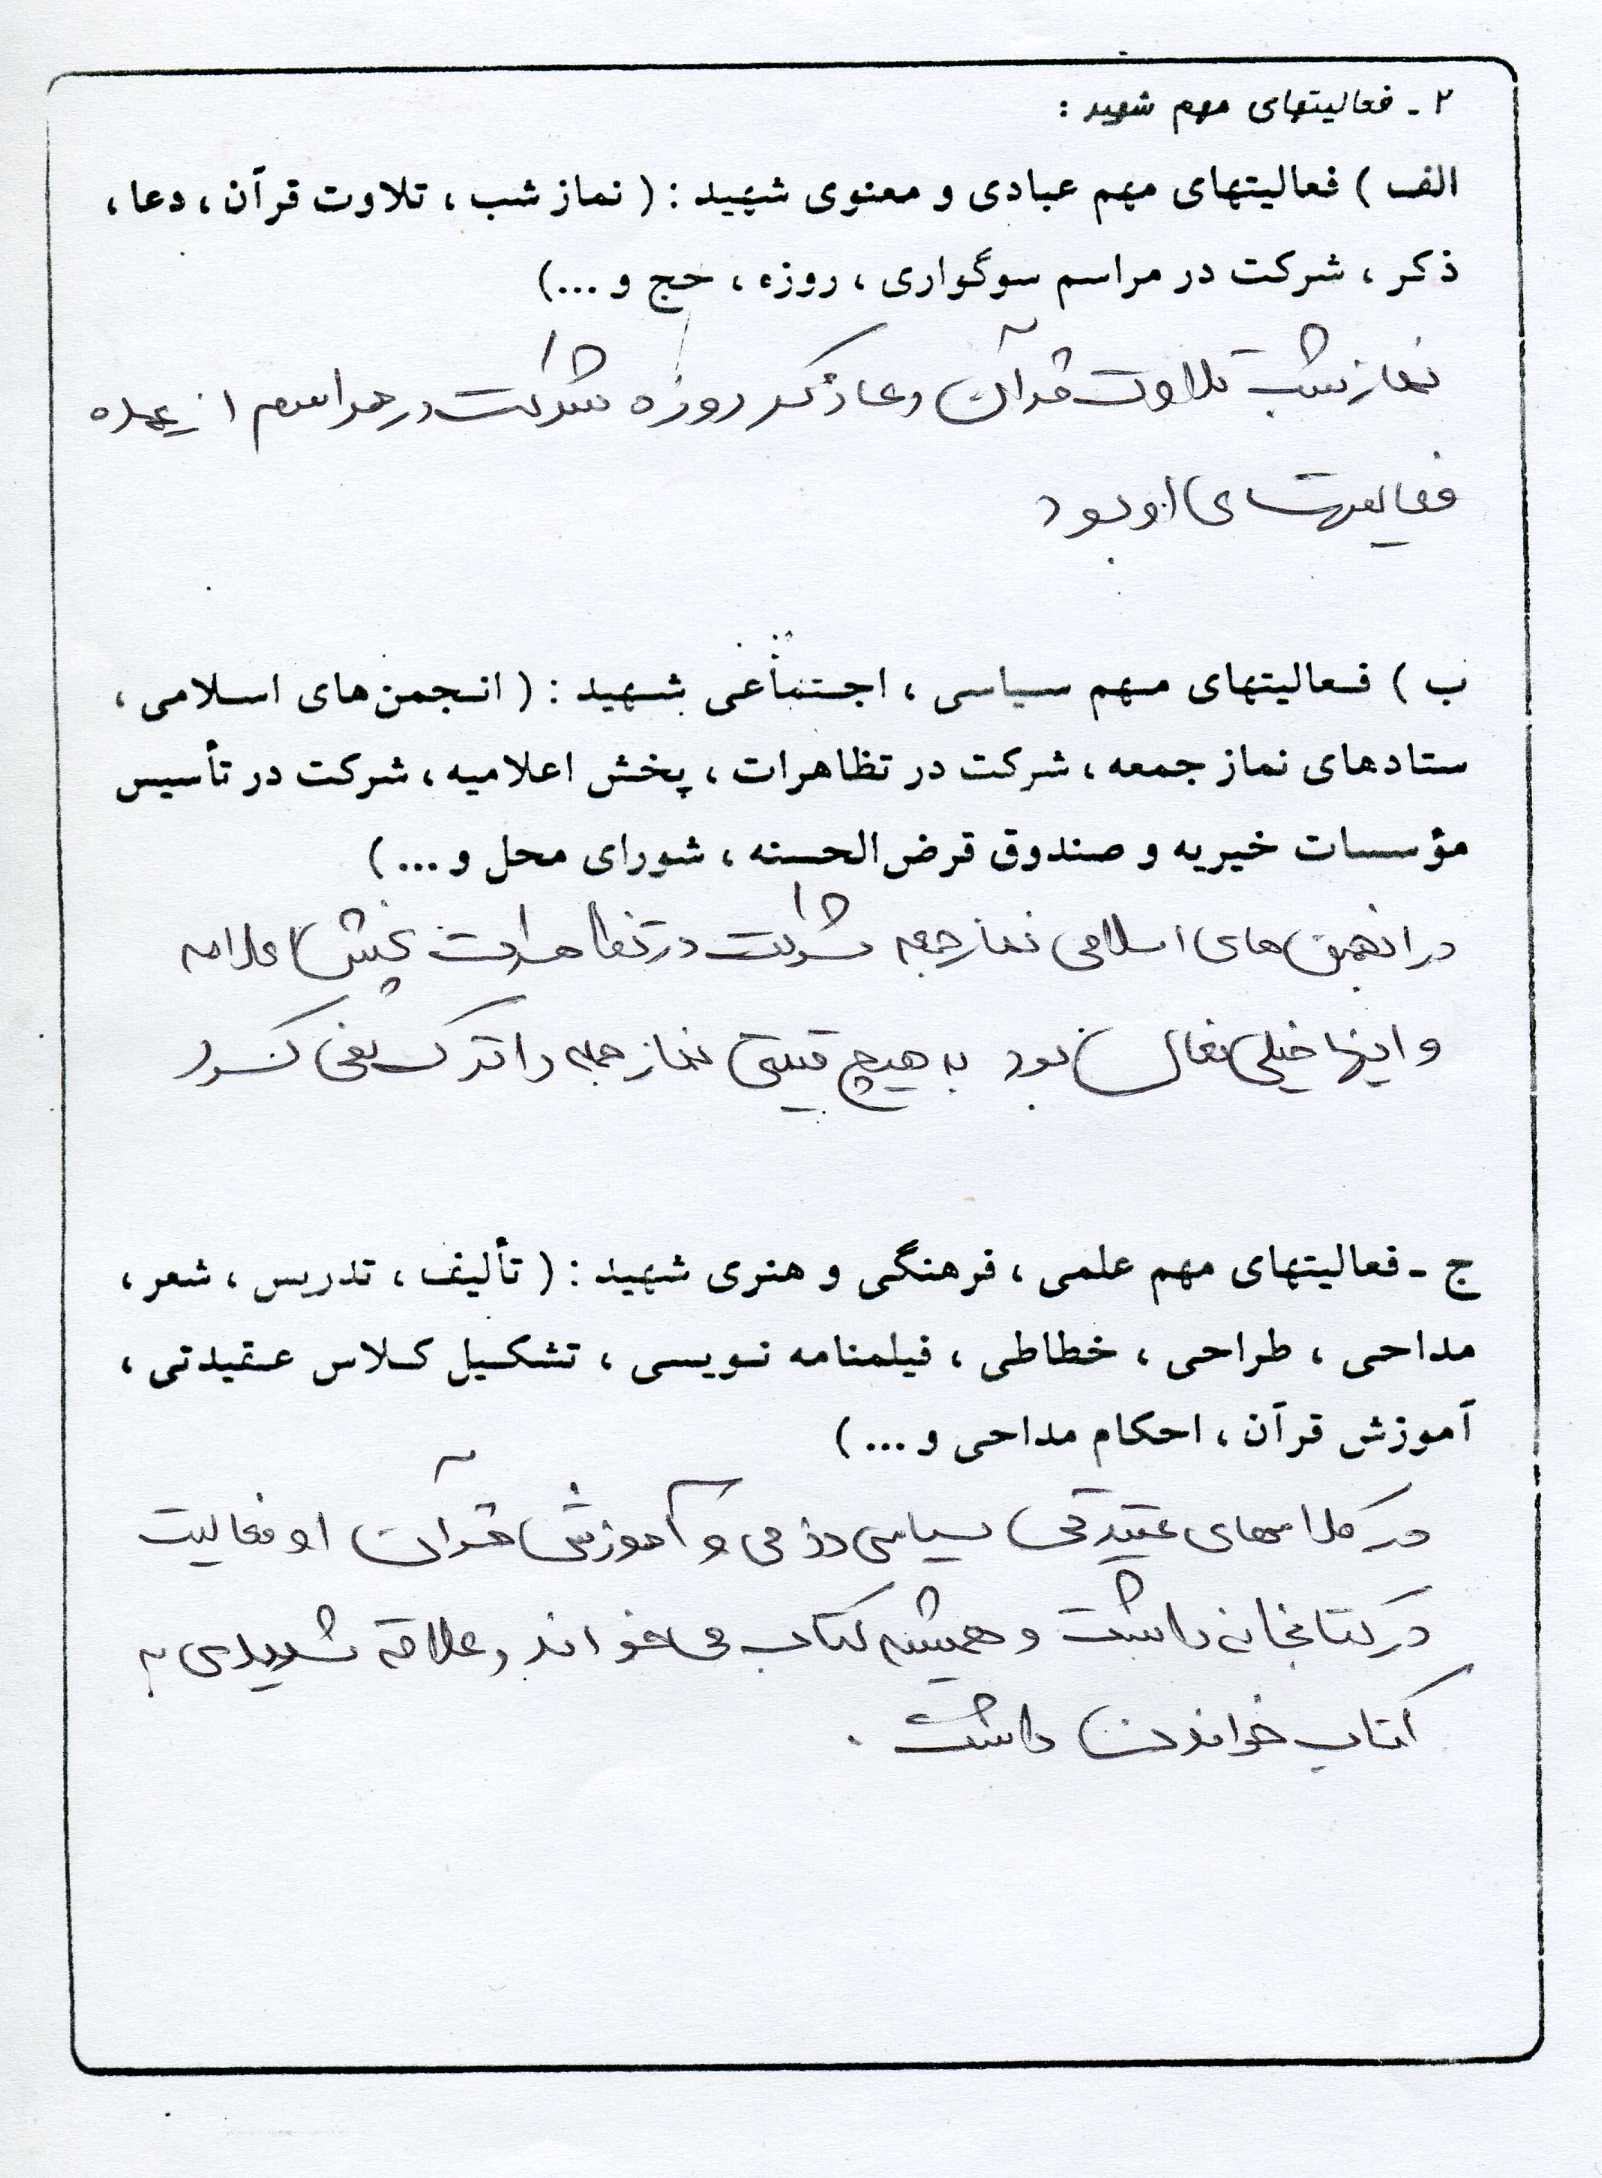 ۲ ـ فعالیتهای مهم شهید :
الف ) فعالیتهای مهم عبادی و معنوی شهید : ( نماز شب ، تلاوت قرآن ، دعا ،
ذکر ، شرکت در مراسم سوگواری ، روزه ، حج و ...)
نماز شب تلاوت قرآن دعا ذکر روزه شرکت در مراسم از عمده
فعالیتهای او بود
ب ) فعالیتهای مهم سیاسی ، اجتماعی شهید : ( انجمن‌های اسلامی ،
ستادهای نماز جمعه ، شرکت در تظاهرات ، پخش اعلامیه ، شرکت در تأسیس
مؤسسات خیریه و صندوق قرض‌الحسنه ، شورای محل و ... )
در انجمن های اسلامی نماز جمعه شرکت در تظاهرات پخش اعلامیه
و اینها خیلی فعال بود به هیچ قیمتی نماز جمعه را ترک نمی کرد
ج ـ فعالیتهای مهم علمی ، فرهنگی و هنری شهید : ( تألیف ، تدریس ، شعر ،
مداحی ، طراحی ، خطاطی ، فیلمنامه نویسی ، تشکیل کلاس عقیدتی ،
آموزش قرآن ، احکام مداحی و ... )
در کلاسهای عقیدتی سیاسی رزمی و آموزش قرآن او فعالیت
در کتابخانه داشت و همیشه کتاب می خواند و علاقه شدیدی به
کتاب خواندن داشت .